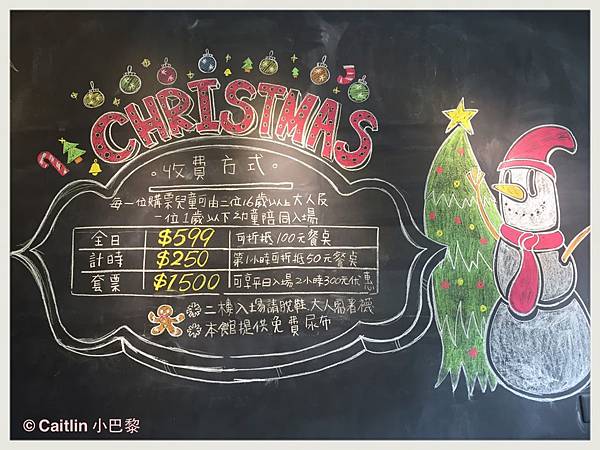 CHRISTMAS
·收費方式·
每一位購票兒童可由二位16歲以上大人及
一位1歲以下幼童陪同入場
全日 $599 可折抵100元餐桌
計時 $250 第1小時可折抵50元餐桌
套票 $1500 可享平日入場2小時300元優惠
二樓入場請脫鞋 大人需著襪
本館提供免費尿布
© Caitlin 小巴黎